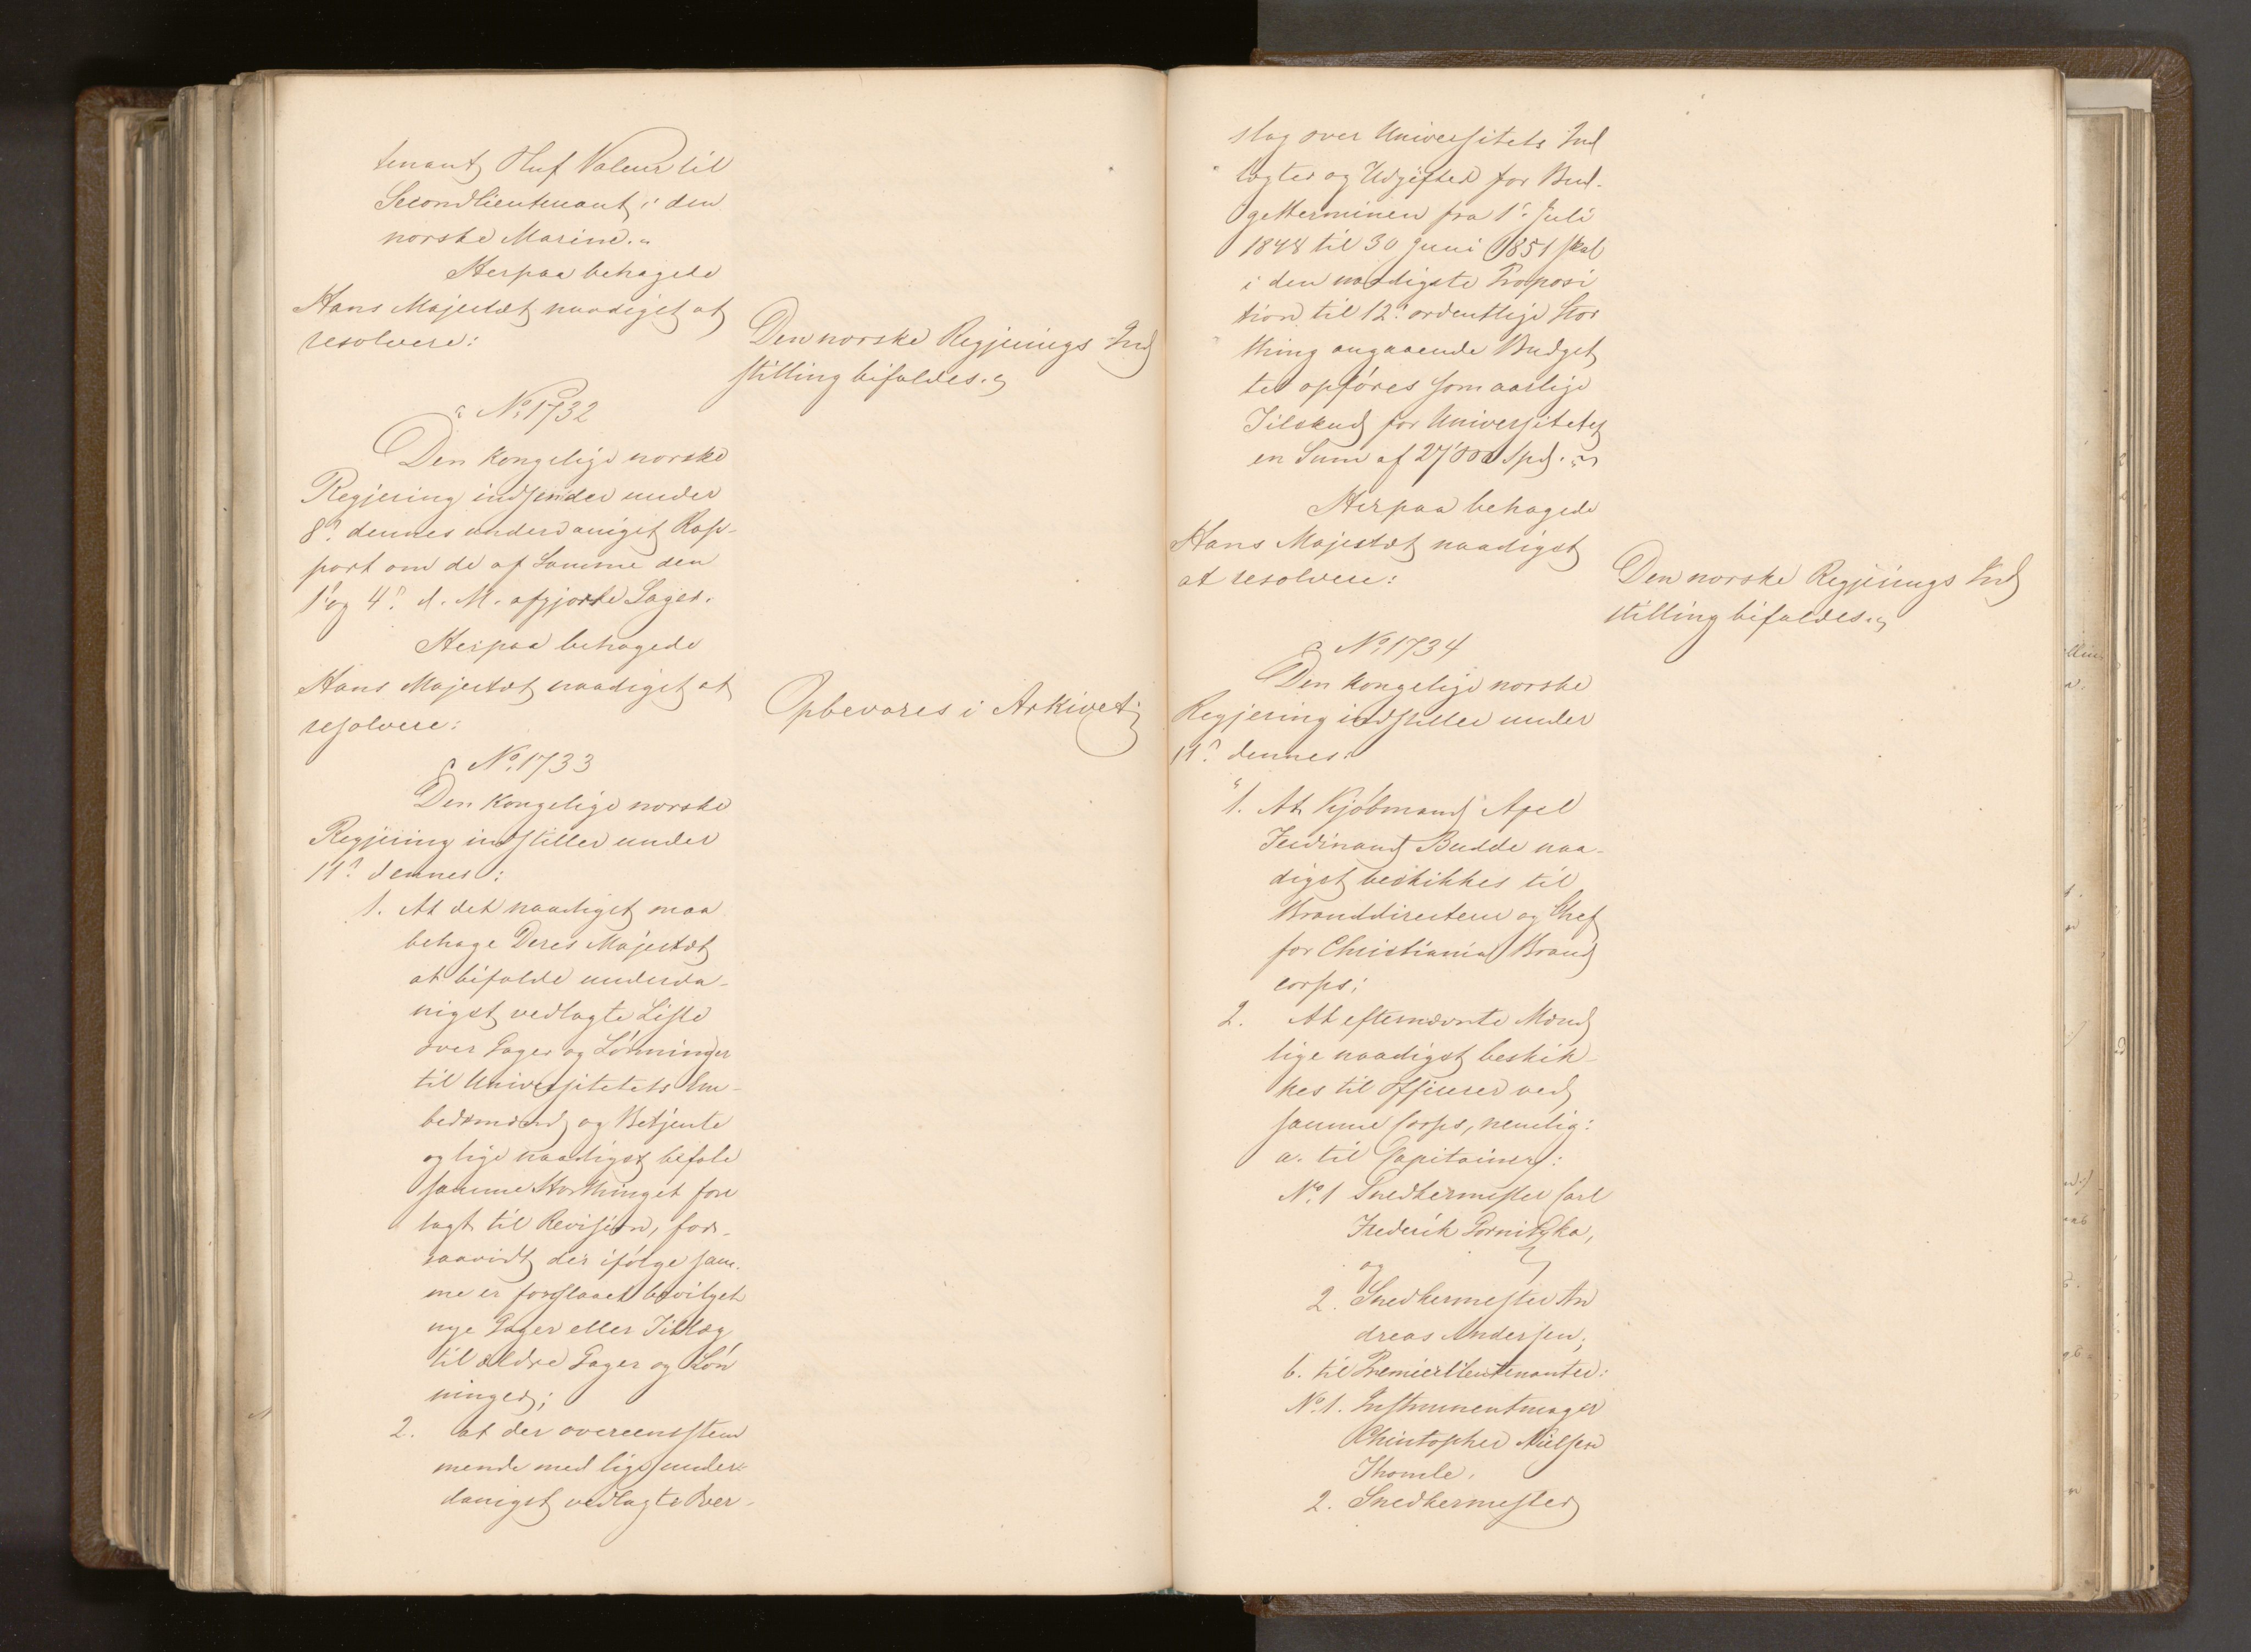 tenant Oluf Valeur til
Secondlieutenant i den
norske Marine.«
Herpaa behagede
Hans Majestæt naadigst at
resolvere:
Den norske Regjerings Ind
stilling bifaldes.
No 1732
Den kongelige norske
Regjering indsender under
8de dennes underdanigst Rap-
port om de af Samme den
1ste og 4de d. M. afgjorte Sager.
Herpaa behagede
Hans Majestæt naadigst at
resolvere:
Opbevares i Arkivet.
No 1733
Den Kongelige norske
Regjering indstiller under
11te dennes:
1. At det naadigst maa
behage Deres Majestæt
at bifalde underda-
nigst vedlagte Liste
over Gager og Lønninger
til Universitetets Em-
bedsmænd og Betjente
og lige naadigst befale
samme Storthinget fore
lagt til Revision, for-
saavidt der ifølge sam-
me er foreslaaet bevilget
nye Gager eller Tillæg
til ældre Gager og Løn
ninger;
2. at der overeensstem
mende med lige under-
danigst vedlagte Over-
slag over Universitets Ind
tægter og Udgifter for Bud-
getterminen fra 1ste Juli
1848 til 30 Juni 1851 skal
i den naadigste Proposi
tion til 12te ordentlige Stor
thing angaaende Budget
tet opføres som aarlige
Tilskud for Universitetet
en Sum af 27000 Spd.«
Herpaa behagede
Hans Majestæt naadigst
at resolvere:
Den norske Regjerings Ind
stilling bifaldes.
No 1734
Den kongelige norske
Regjering indstiller under
11te dennes:
"1. At Kjøbmand Axel
Ferdinand Budde naa-
digst beskikkes til
Branddirecteur og Chef
for Christiania Brand
corps;
2. At efternævnte Mænd
lige naadigst beskik-
kes til Officerer ved
samme Corps, nemlig:
a. til Capitainer:
No 1 Snedkermester Carl
Frederik Gornitzka,
og
2. Snedkermester An
dreas Andersen;
b. til Premierlieutenanter:
No 1. Instrumentmager
Christopher Nielsen
Thomle.
2. Snedkermester